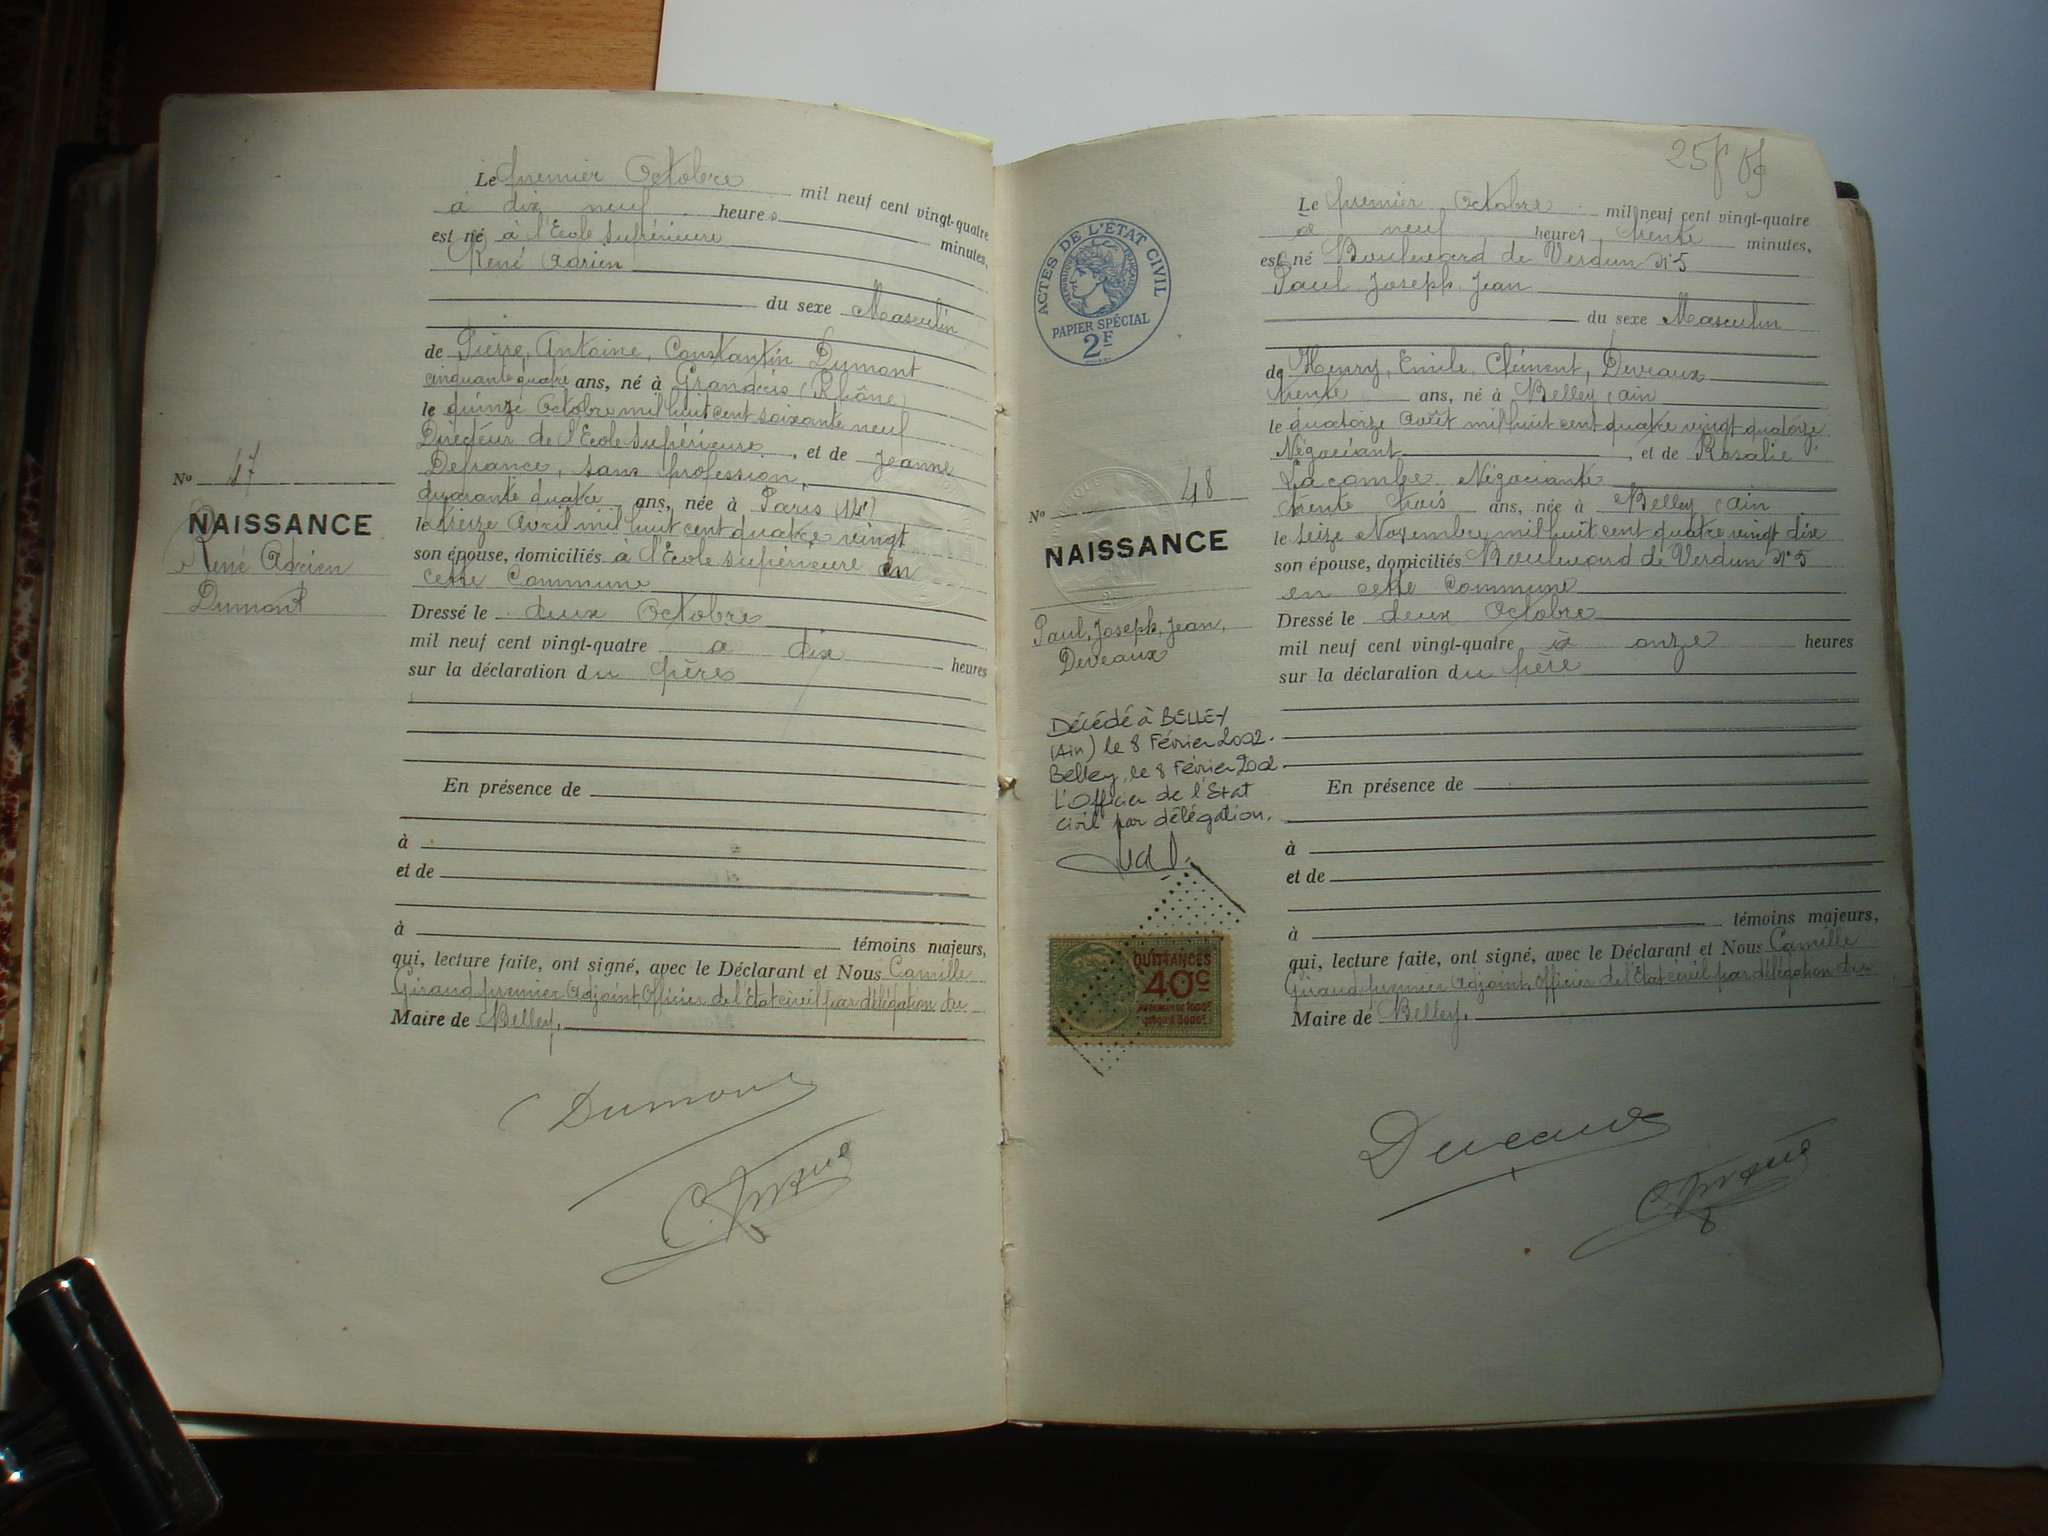 Le premier Octobre mil neuf cent vingt-quatre
à dix neuf heures minutes,
est né à l'Ecole supérieure
René Adrien
du sexe Masculin
de Pierre, Antoine, Constantin Dumont
cinquante quatre ans, né à Grandris (Rhône)
le quinze Octobre mil huit cent soixante neuf
Directeur de l'Ecole supérieure, et de Jeanne
Defrance, sans profession,
quarante quatre ans, née à Paris (14e)
le treize Avril mil huit cent quatre vingt
son épouse, domiciliés à l'Ecole supérieure en
cette Commune
Dressé le deux Octobre
mil neuf cent vingt-quatre à dix heures
sur la déclaration du père
En présence de
à
et de
à témoins majeurs,
qui, lecture faite, ont signé, avec le Déclarant et Nous Camille
Giraud premier Adjoint, Officier de l'état civil par délégation du
Maire de Belley,
Dumont
C. Giraud
No 47
NAISSANCE
René Adrien
Dumont
ACTES DE L'ÉTAT CIVIL
RÉPUBLIQUE FRANÇAISE
PAPIER SPÉCIAL
2F
No 48
NAISSANCE
Paul, Joseph, Jean,
Deveaux
Décédé à BELLEY
(Ain) le 8 Février 2002.
Belley, le 8 Février 2002
L'Officier de l'Etat
civil par délégation.
QUITTANCES
40c
Le premier Octobre mil neuf cent vingt-quatre
à neuf heures, trente minutes,
est né Boulevard de Verdun N°5
Paul, Joseph, Jean
du sexe Masculin
de Henry, Emile, Clément, Deveaux
trente ans, né à Belley (ain
le quatorze Août mil huit cent quatre vingt quatorze
Négociant, et de Rosalie
Lacombe Négociante
trente trois ans, née à Belley (ain
le seize Novembre mil huit cent quatre vingt dix
son épouse, domiciliés Boulevard de Verdun N°5
en cette Commune
Dressé le deux Octobre
mil neuf cent vingt-quatre à onze heures
sur la déclaration du père
En présence de
à
et de
à témoins majeurs,
qui, lecture faite, ont signé, avec le Déclarant et Nous Camille
Giraud premier Adjoint, Officier de l'Etat civil par délégation du
Maire de Belley.
Deveaux
C. Giraud